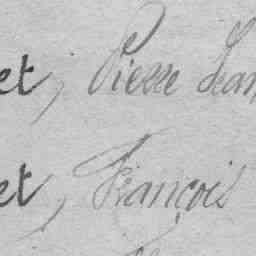 et, Pierre Jean
et, François